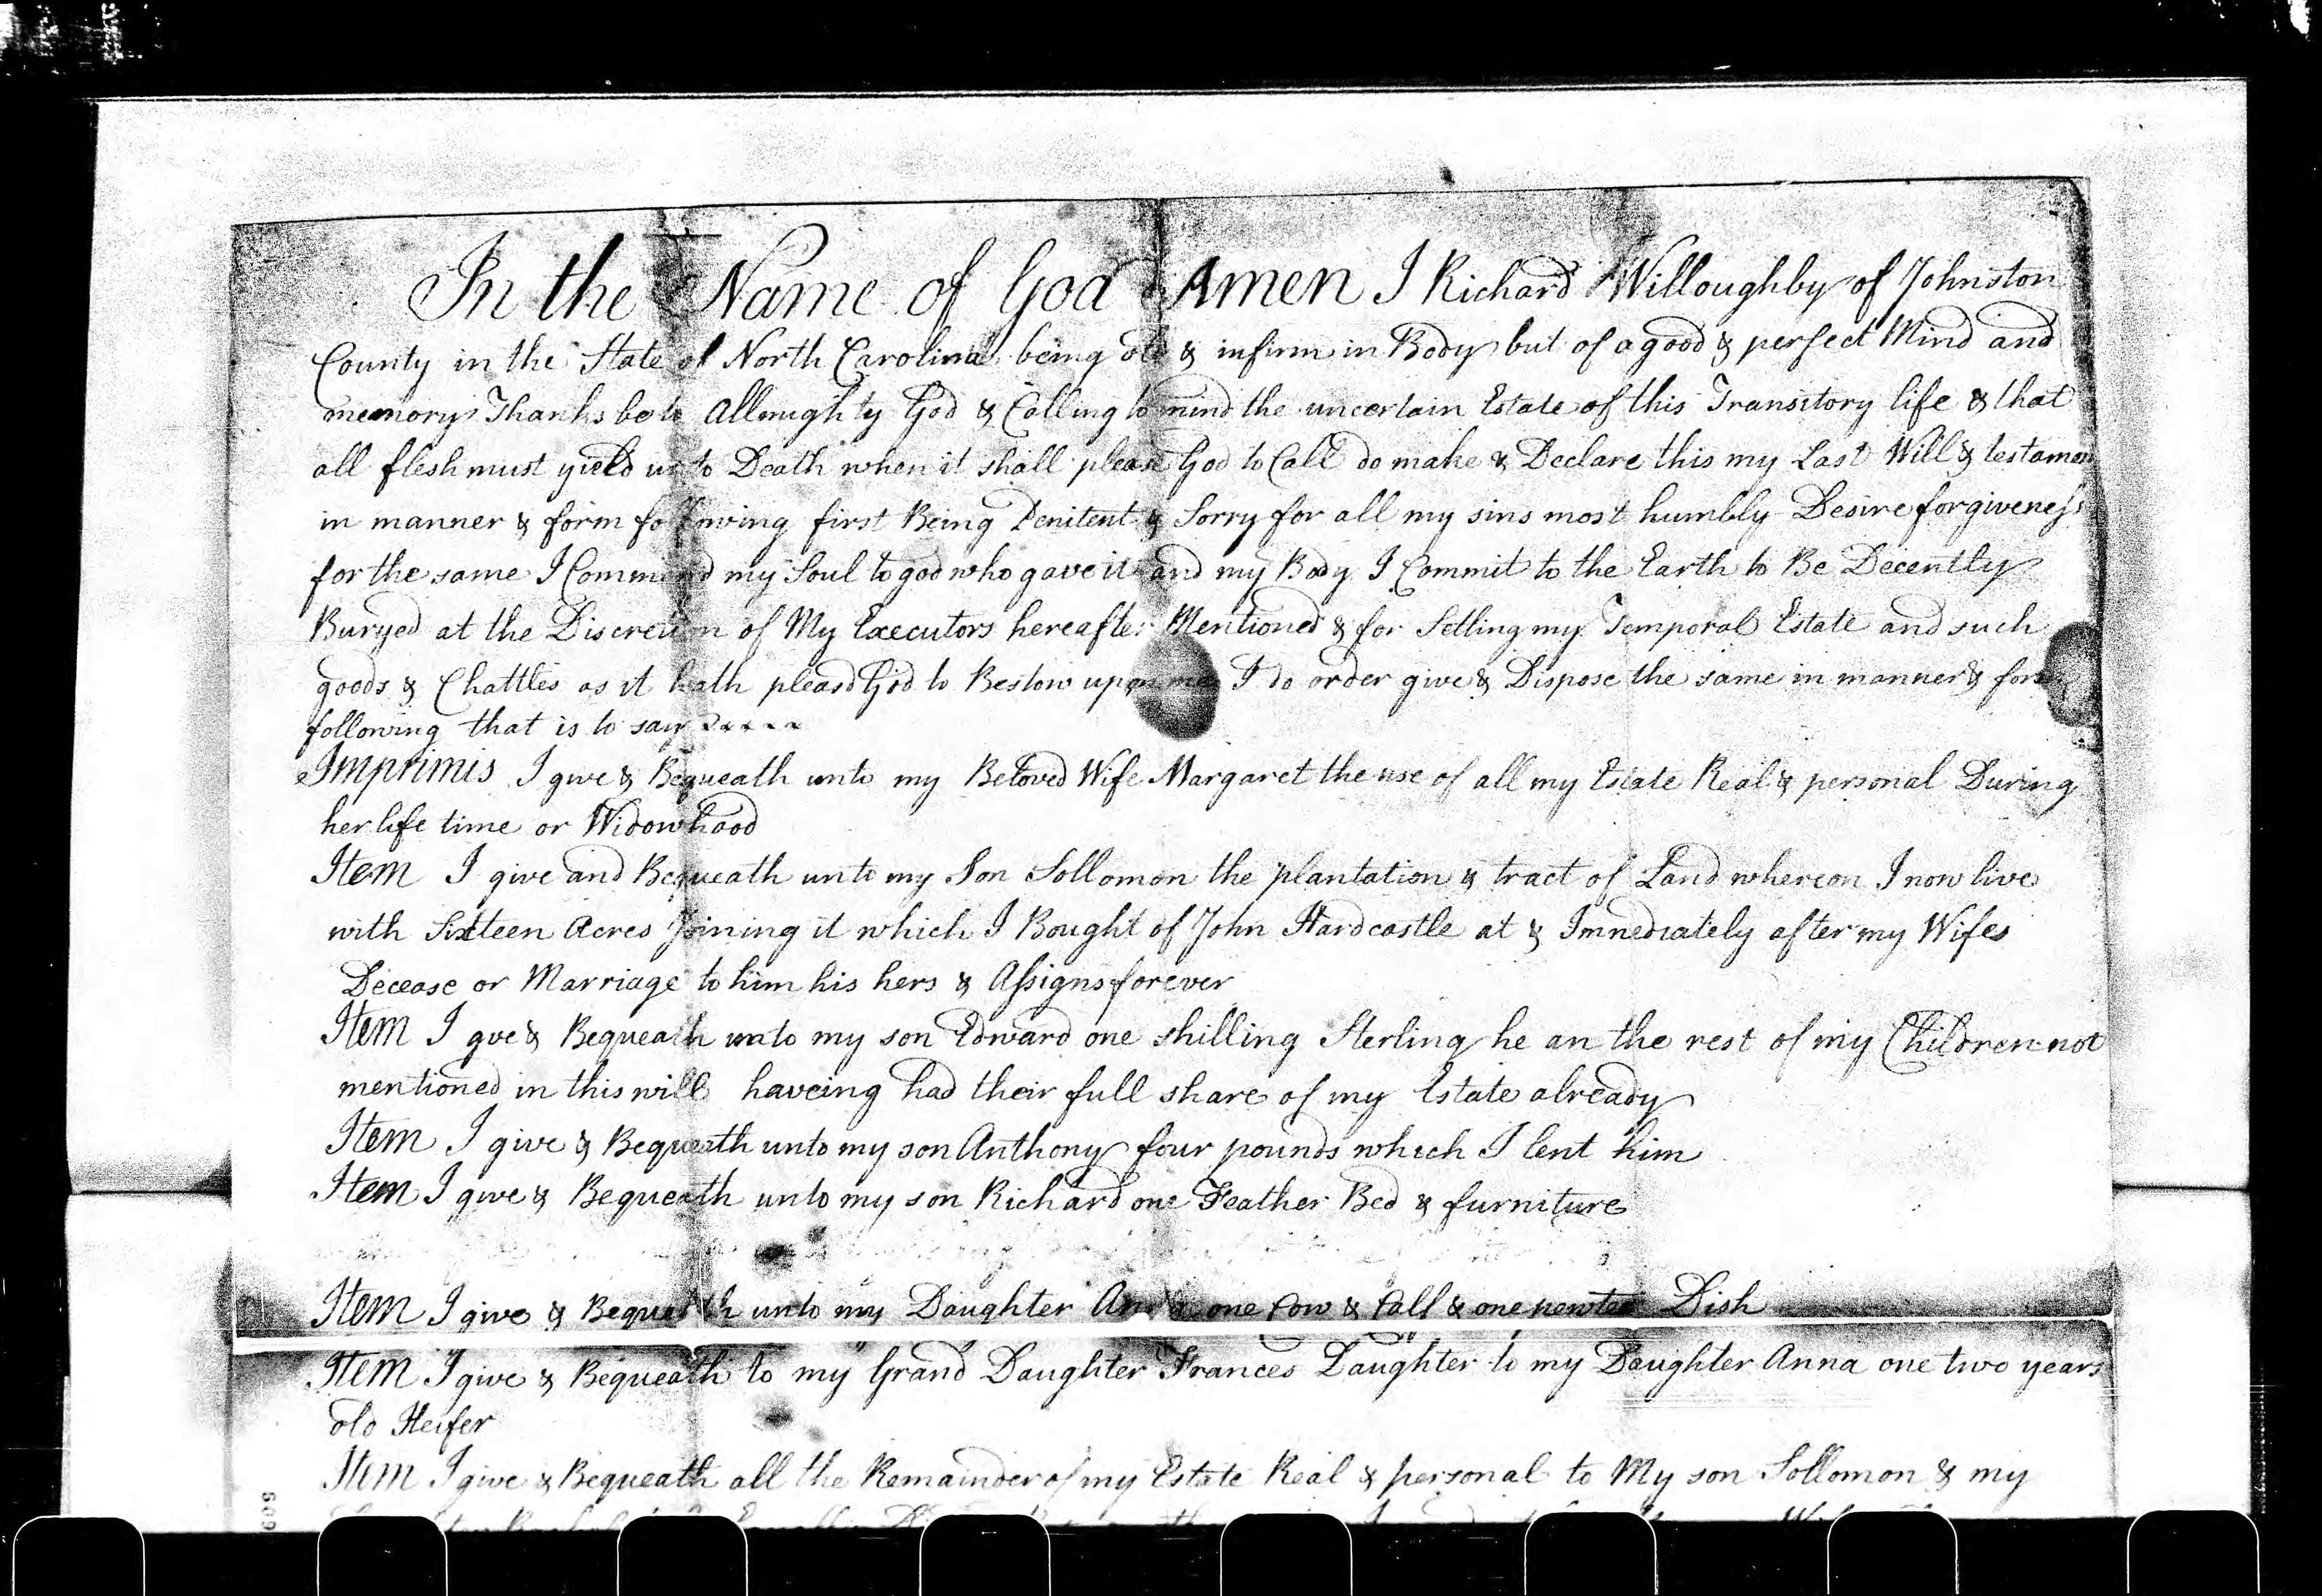 In the Name of God Amen I Richard Willoughby of Johnston
County in the State of North Carolina being old & infirm in Body but of a good & perfect Mind and
memory Thanks be to Allmighty God & Calling to mind the uncertain Estate of this Transitory life & that
all flesh must yield unto Death when it shall please God to Call do make & Declare this my Last Will & testamen
in manner & form following first Being Penitent & Sorry for all my sins most humbly Desire forgiveness
for the same I Commend my Soul to god who gave it and my Body I Commit to the Earth to Be Decently
Buryed at the Discretion of My Executors hereafter Mentioned & for Setling my Temporal Estate and such
goods & Chattles as it hath pleasd God to Bestow upon me I do order give & Dispose the same in manner & form
following that is to say
Imprimis I give & Bequeath unto my Beloved Wife Margaret the use of all my Estate Real & personal During
her life time or Widowhood
Item I give and Bequeath unto my Son Sollomon the plantation & tract of Land whereon I now live
with Sixteen Acres Joining it which I Bought of John Hardcastle at & Immediately after my Wifes
Decease or Marriage to him his hers & Assigns forever
Item I gve & Bequeath unto my son Edward one shilling Sterling he an the rest of my Children not
mentioned in this will haveing had their full share of my Estate already
Item I give & Bequeath unto my son Anthony four pounds which I lent him
Item I give & Bequeath unto my son Richard one Feather Bed & furniture
Item I give & Bequeath unto my Daughter Anna one Cow & Calf & one pewter Dish
Item I give & Bequeath to my Grand Daughter Frances Daughter to my Daughter Anna one two years
old Heifer
Item I give & Bequeath all the Remainder of my Estate Real & personal to My son Sollomon & my